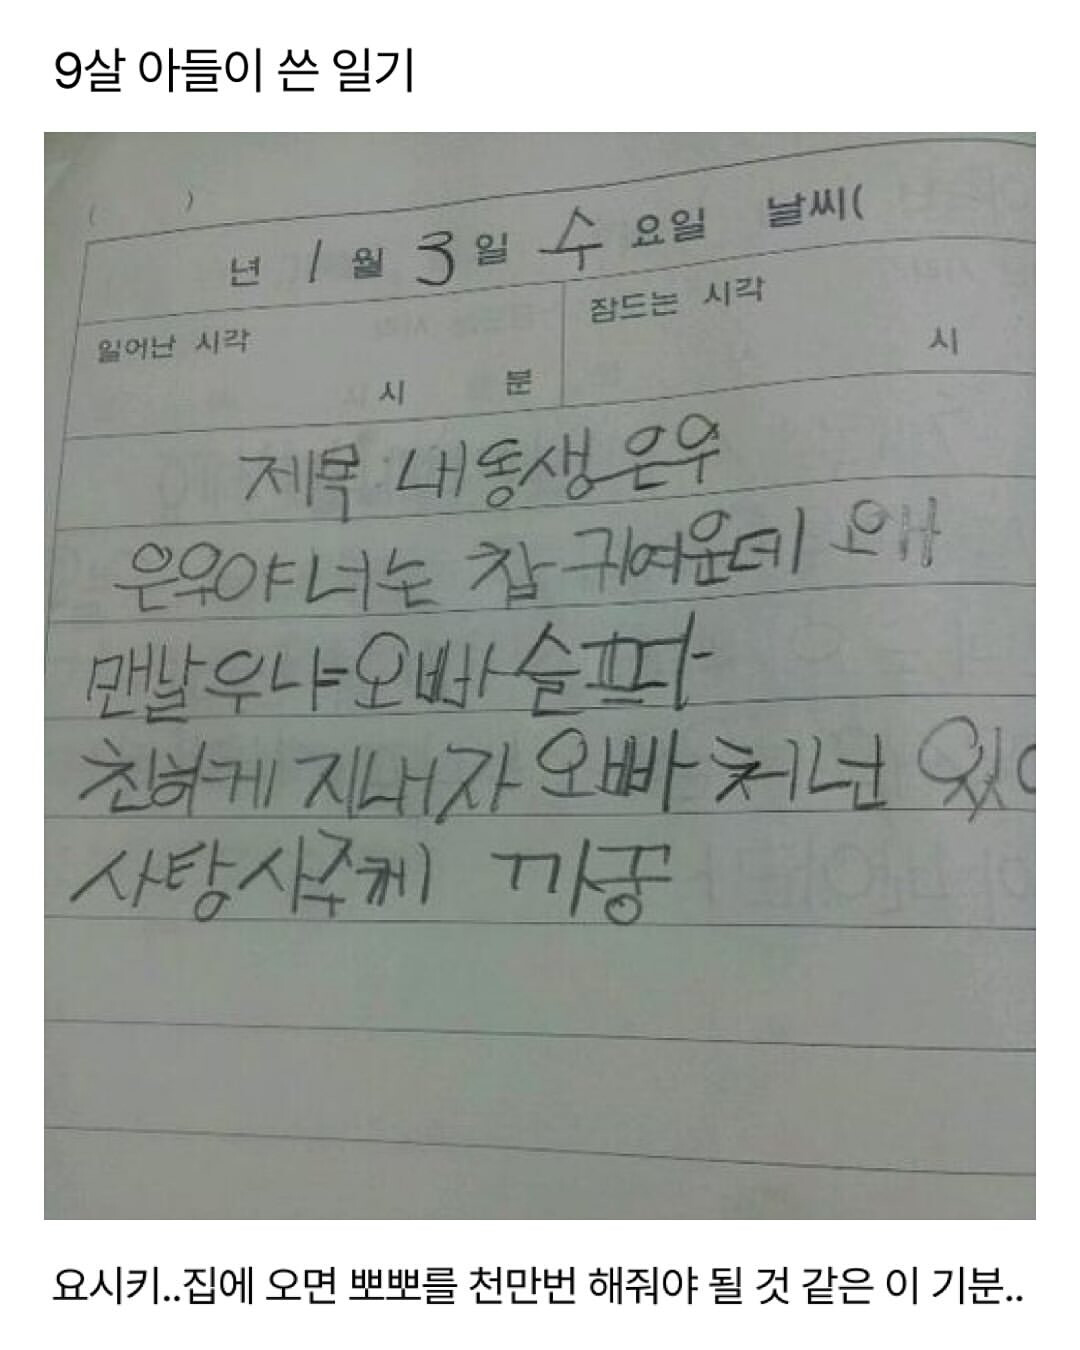 9살 아들이 쓴 일기
( )
년 1 월 3 일 수 요일 날씨(
일어난 시각 잠드는 시각
시 분 시
제목 내동생은우
은우야너는 참 귀여운데 왜
맨날우냐오빠슬프다
친하게 지내자 오빠 처넌 있어
사탕사주께 까꿍
요시키..집에 오면 뽀뽀를 천만번 해줘야 될 것 같은 이 기분..